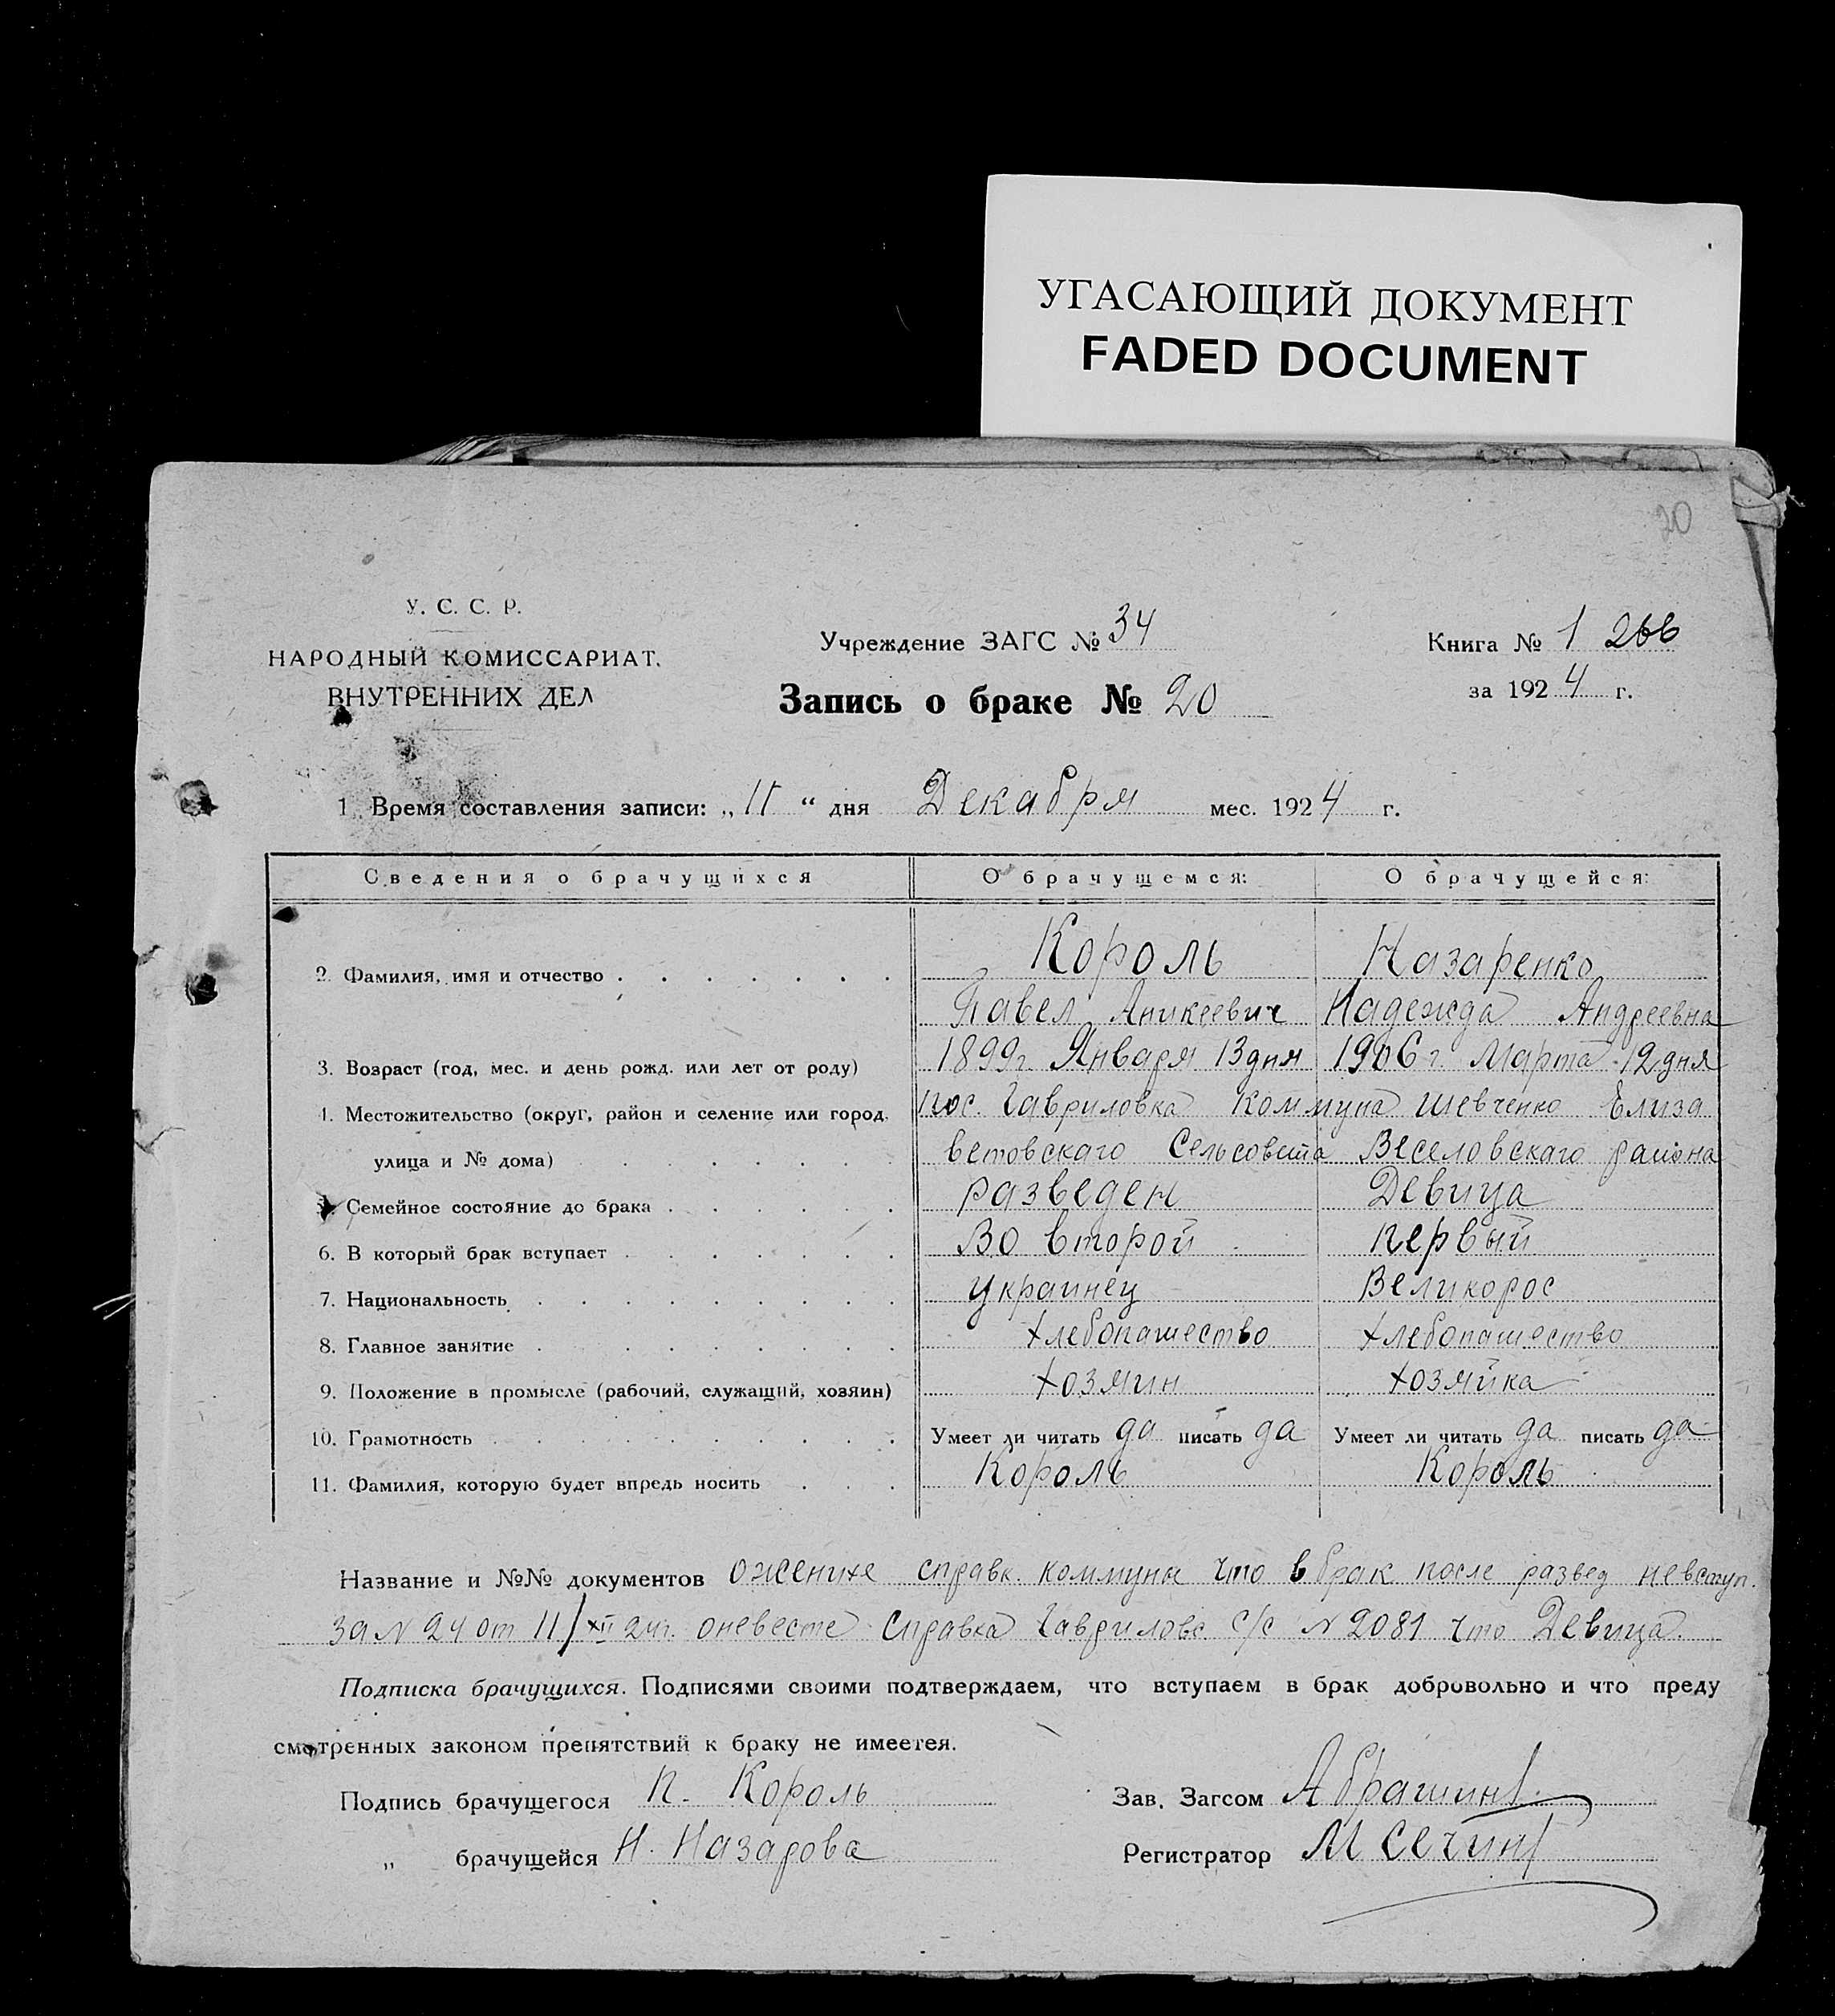 УГАСАЮЩИЙ ДОКУМЕНТ
FADED DOCUMENT
20
У. С. С. Р.
НАРОДНЫЙ КОМИССАРИАТ.
ВНУТРЕННИХ ДЕЛ
Учреждение ЗАГС № 34
Запись о браке № 20
Книга № 1 266
за 1924 г.
1. Время составления записи: „ 11 “ дня Декабря мес. 1924 г.
Сведения о брачущихся О брачущемся: О брачущейся:
Король Назаренко
2. Фамилия, имя и отчество
Павел Аникеевич Надежда Андреевна
3. Возраст (год, мес. и день рожд. или лет от роду) 1899 г. Января 13 дня 1906 г Марта 12 дня
4. Местожительство (округ, район и селение или город, пос. Гавриловка Коммуна Шевченко Елиза
улица и № дома) ветовскаго Сельсовета Веселовскаго района
5. Семейное состояние до брака разведен Девица
6. В который брак вступает Во второй первый
7. Национальность украинец Великорос
8. Главное занятие хлебопашество хлебопашество
9. Положение в промысле (рабочий, служащий, хозяин) хозяин хозяйка
10. Грамотность Умеет ли читать да писать да Умеет ли читать да писать да
11. Фамилия, которую будет впредь носить Король Король
Название и №№ документов о женихе справк. коммуны что в брак после развед не вступ.
за N 24 от 11/XII 24 г. о невесте справка Гавриловс с/с N 2081 что Девица.
Подписка брачущихся. Подписями своими подтверждаем, что вступаем в брак добровольно и что преду
смотренных законом препятствий к браку не имеется.
Подпись брачущегося П. Король Зав. Загсом
„ брачущейся Н. Назарова Регистратор М Сечин